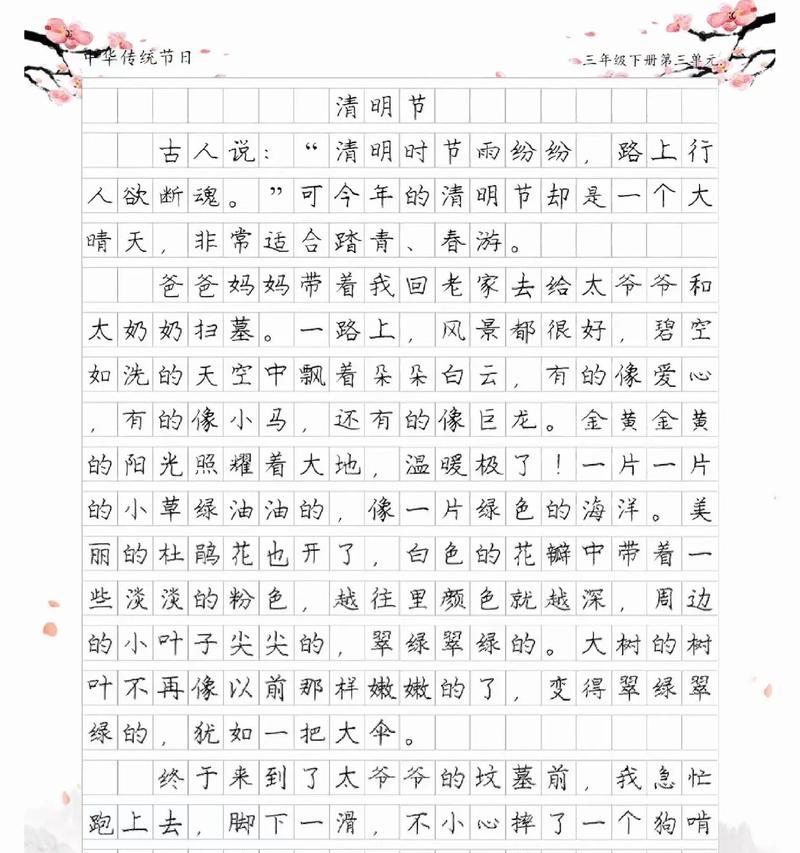 中华传统节日
三年级下册第三单元
清明节
古人说：“清明时节雨纷纷，路上行
人欲断魂。”可今年的清明节却是一个大
晴天，非常适合踏青、春游。
爸爸妈妈带着我回老家去给太爷爷和
太奶奶扫墓。一路上，风景都很好，碧空
如洗的天空中飘着朵朵白云，有的像爱心
，有的像小马，还有的像巨龙。金黄金黄
的阳光照耀着大地，温暖极了！一片一片
的小草绿油油的，像一片绿色的海洋。美
丽的杜鹃花也开了，白色的花瓣中带着一
些淡淡的粉色，越往里颜色就越深，周边
的小叶子尖尖的，翠绿翠绿的。大树的树
叶不再像以前那样嫩嫩的了，变得翠绿翠
绿的，犹如一把大伞。
终于来到了太爷爷的坟墓前，我急忙
跑上去，脚下一滑，不小心摔了一个狗啃